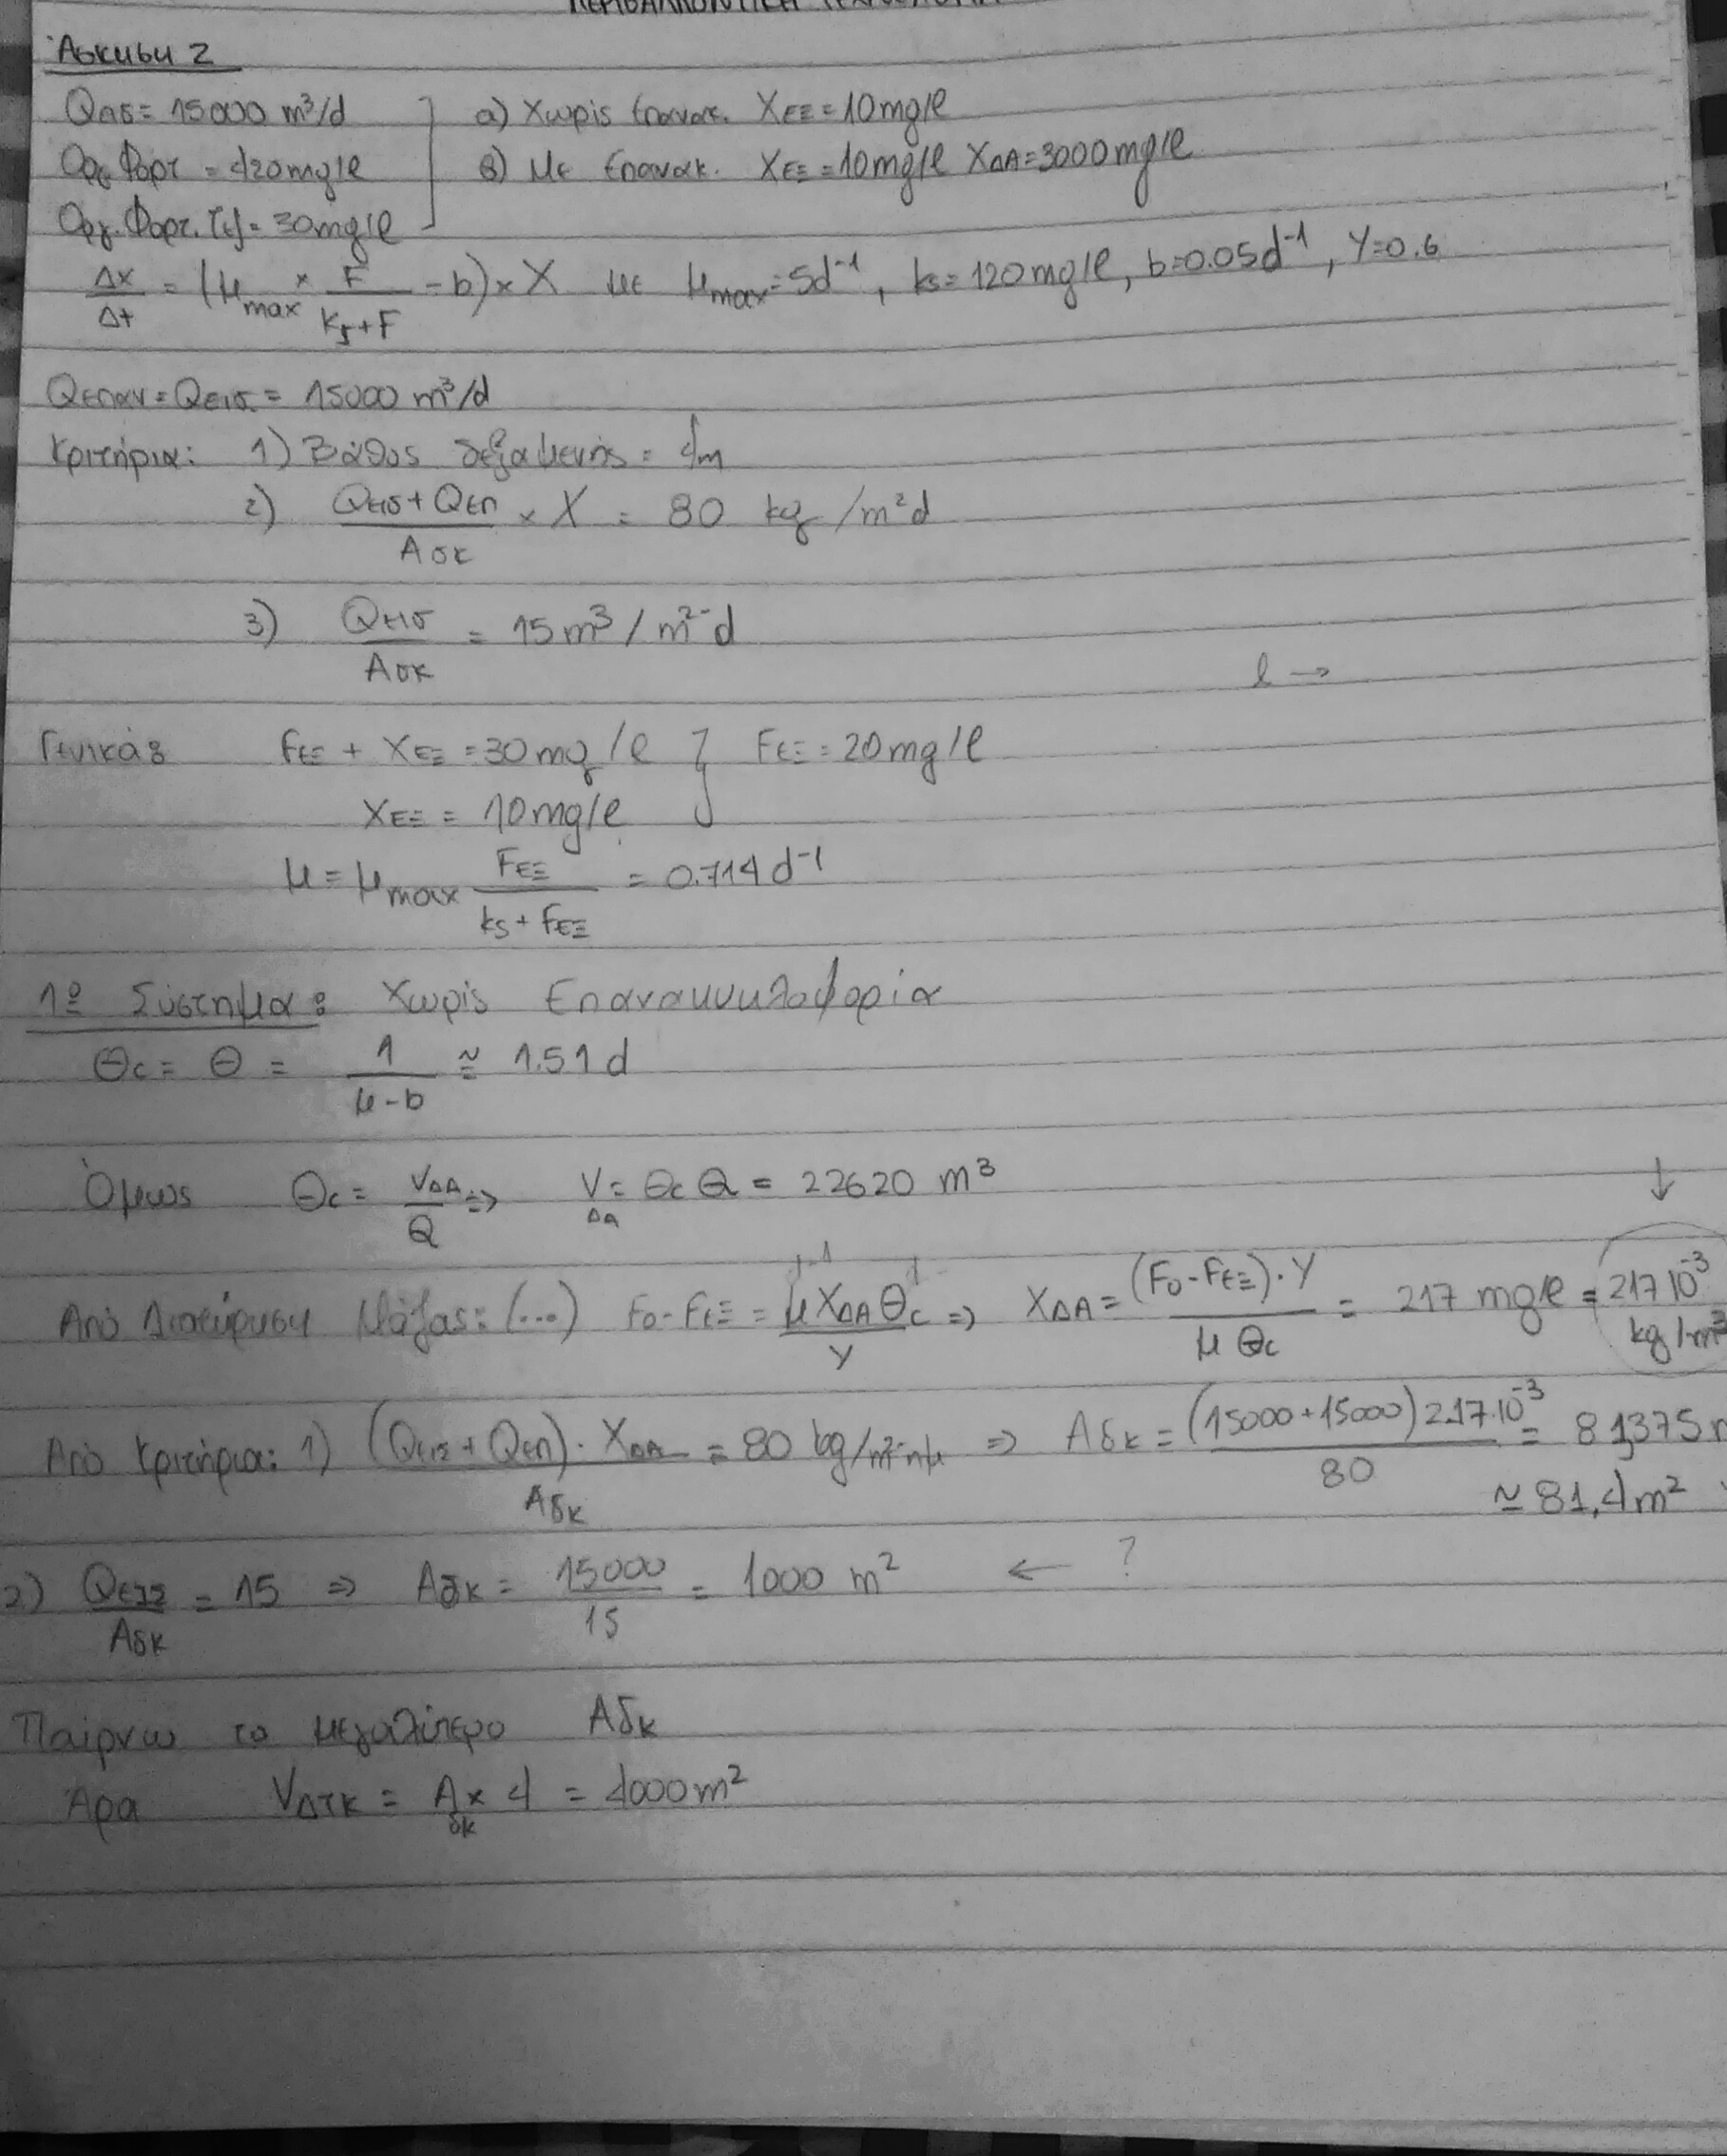 ΠΕΡΙΒΑΛΛΟΝΤΙΚΗ ΤΕΧΝΟΛΟΓΙΑ
Άσκηση 2
Qπσ = 15000 m³/d
a) Χωρίς Επανακ. XΕΞ = 10mg/l
Οργ. Φορτ = 420mg/l
β) Με Επανακ. XΕΞ = 10mg/l XΔΑ = 3000mg/l
Οργ. Φορτ. Τελ = 30mg/l
ΔX/Δt = (μmax × F/(Ks+F) - b) × X με μmax = 5d⁻¹, ks = 120mg/l, b = 0.05d⁻¹, Y = 0.6
Qεπαν = Qεισ = 15000 m³/d
Κριτήρια: 1) Βάθος δεξαμενής = 4m
2) (Qεισ + Qεπ)/Aδκ × X = 80 kg/m²d
3) Qεισ/Aδκ = 15m³/m²d
l →
Γενικά: FΕΞ + XΕΞ = 30mg/l } FΕΞ = 20mg/l
XΕΞ = 10mg/l
μ = μmax FΕΞ/(ks + FΕΞ) = 0.714d⁻¹
1º Σύστημα: Χωρίς Επανακυκλοφορία
Θc = Θ = 1/(μ-b) ≅ 1.51d
Όμως Θc = VΔΑ/Q ⇒ VΔΑ = Θc Q = 22620 m³
↓
Από Διατήρηση Μάζας: (...) F0 - FΕΞ = μ XΔΑ Θc/Y ⇒ XΔΑ = (F0 - FΕΞ)·Y/(μ Θc) = 217 mg/l = 217 10⁻³ kg/m³
Από Κριτήρια: 1) (Qεισ + Qεπ)·XΔΑ/Aδκ = 80 kg/m² ⇒ Aδκ = (15000+15000)217·10⁻³/80 = 81,375
≃ 81,4m²
2) Qεισ/Aδκ = 15 ⇒ Aδκ = 15000/15 = 1000 m² ← ?
Παίρνω το μεγαλύτερο Aδκ
Άρα VΔΤΚ = Aδκ × 4 = 4000m²